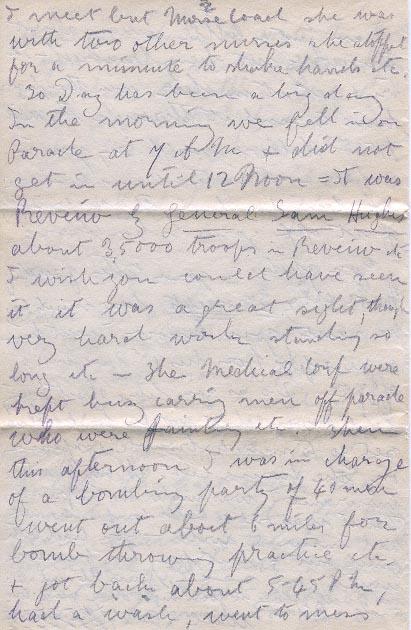 I meet but Nurse Coad she was
with two other nurses she stopped
for a minute to shake hands etc.
To Day has been a big day
In the morning we fell in on
Parade at 7 A M + did not
get in until 12 Noon = It was
Reveiw by General Sam Hughes
about 35000 troops in Reveiw etc
I wish you could have seen
it it was a great sight, though
very hard work standing so
long etc - The Medical Corp were
kept busy carring men off parade
who were fainting etc. Then
this afternoon I was in charge
of a bombing party of 40 men
went out about 6 miles for
bomb throwing practice etc.
+ got back about 5-45 P M,
had a wash, went to mess